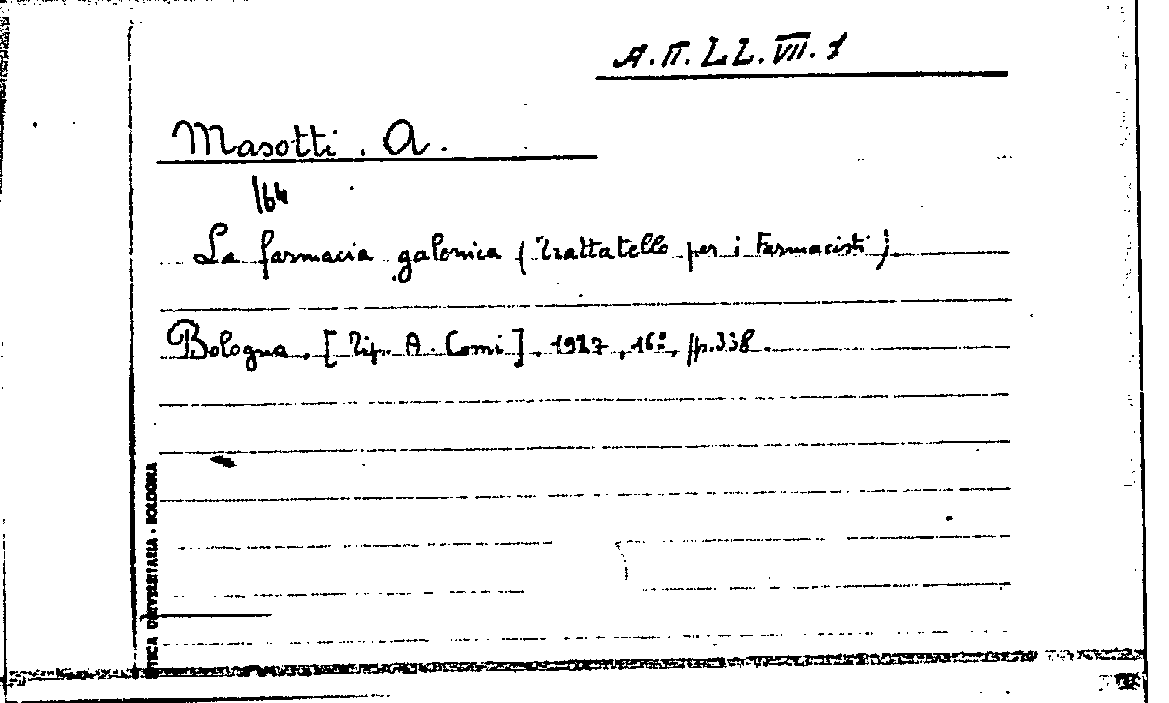 A.II.LL.VII.1
Masotti. A.
164
La farmacia galenica (Trattatello per i Farmacisti).
Bologna. [Tip. A. Comi]. 1927, 16º, p. 338.
UNIVERSITARIA - BOLOGNA